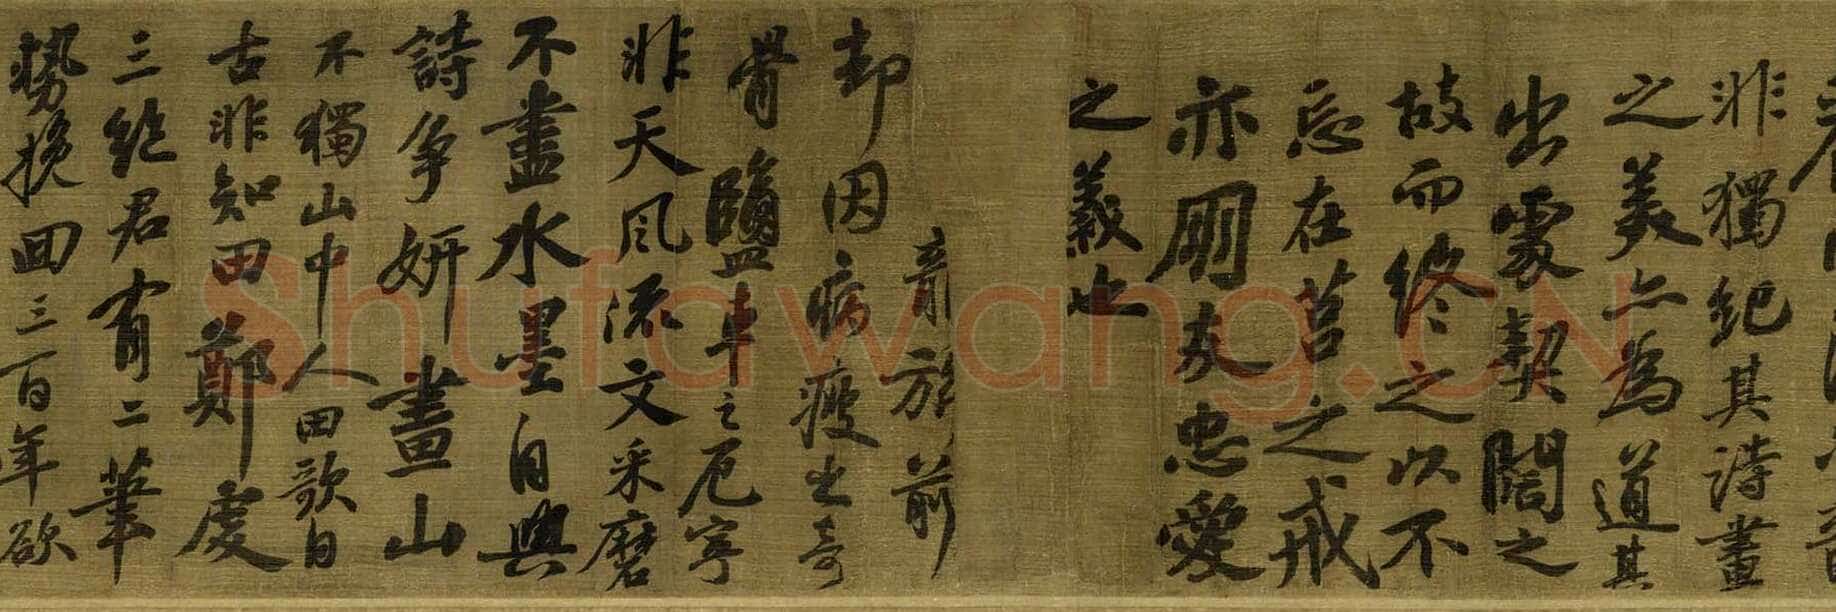 非獨紀其詩畫
之美亦為道其
出處契闊之
故而終之以不
忘在莒之戒
亦朋友忠愛
之義也
前
却因病瘦出奇
骨鹽車之厄寧
非天風流文采磨
不盡水墨自與
詩爭妍畫山
不獨山中人田歌自
古非知田鄭虔
三絕君有二筆
勢挽回三百年欲
Shufawang.CN